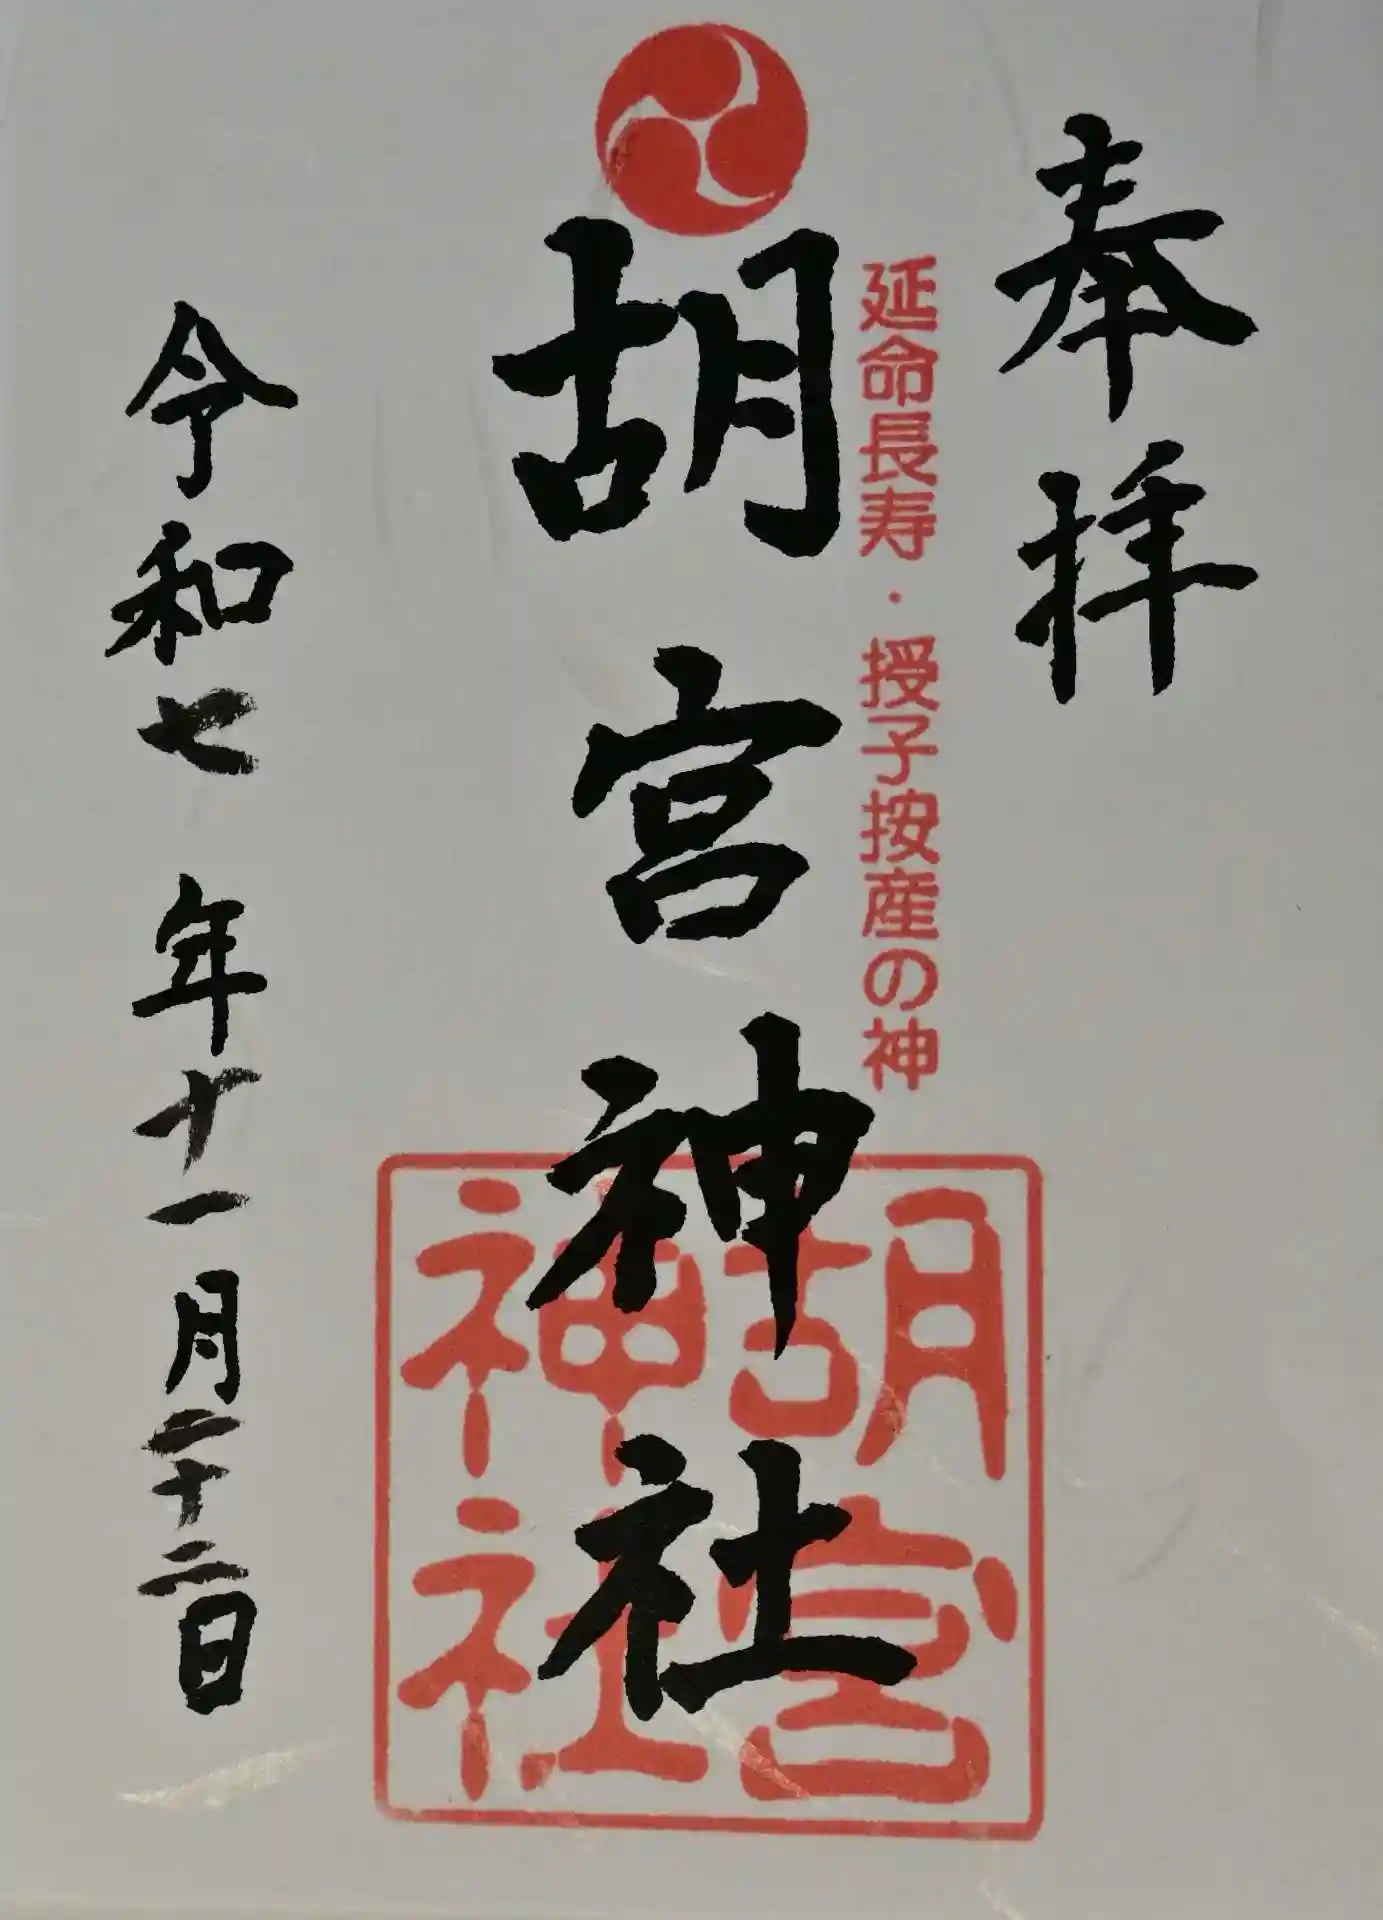 奉拝
延命長寿・授子按産の神
胡宮神社
胡宮
神社
令和七年十一月二十二日